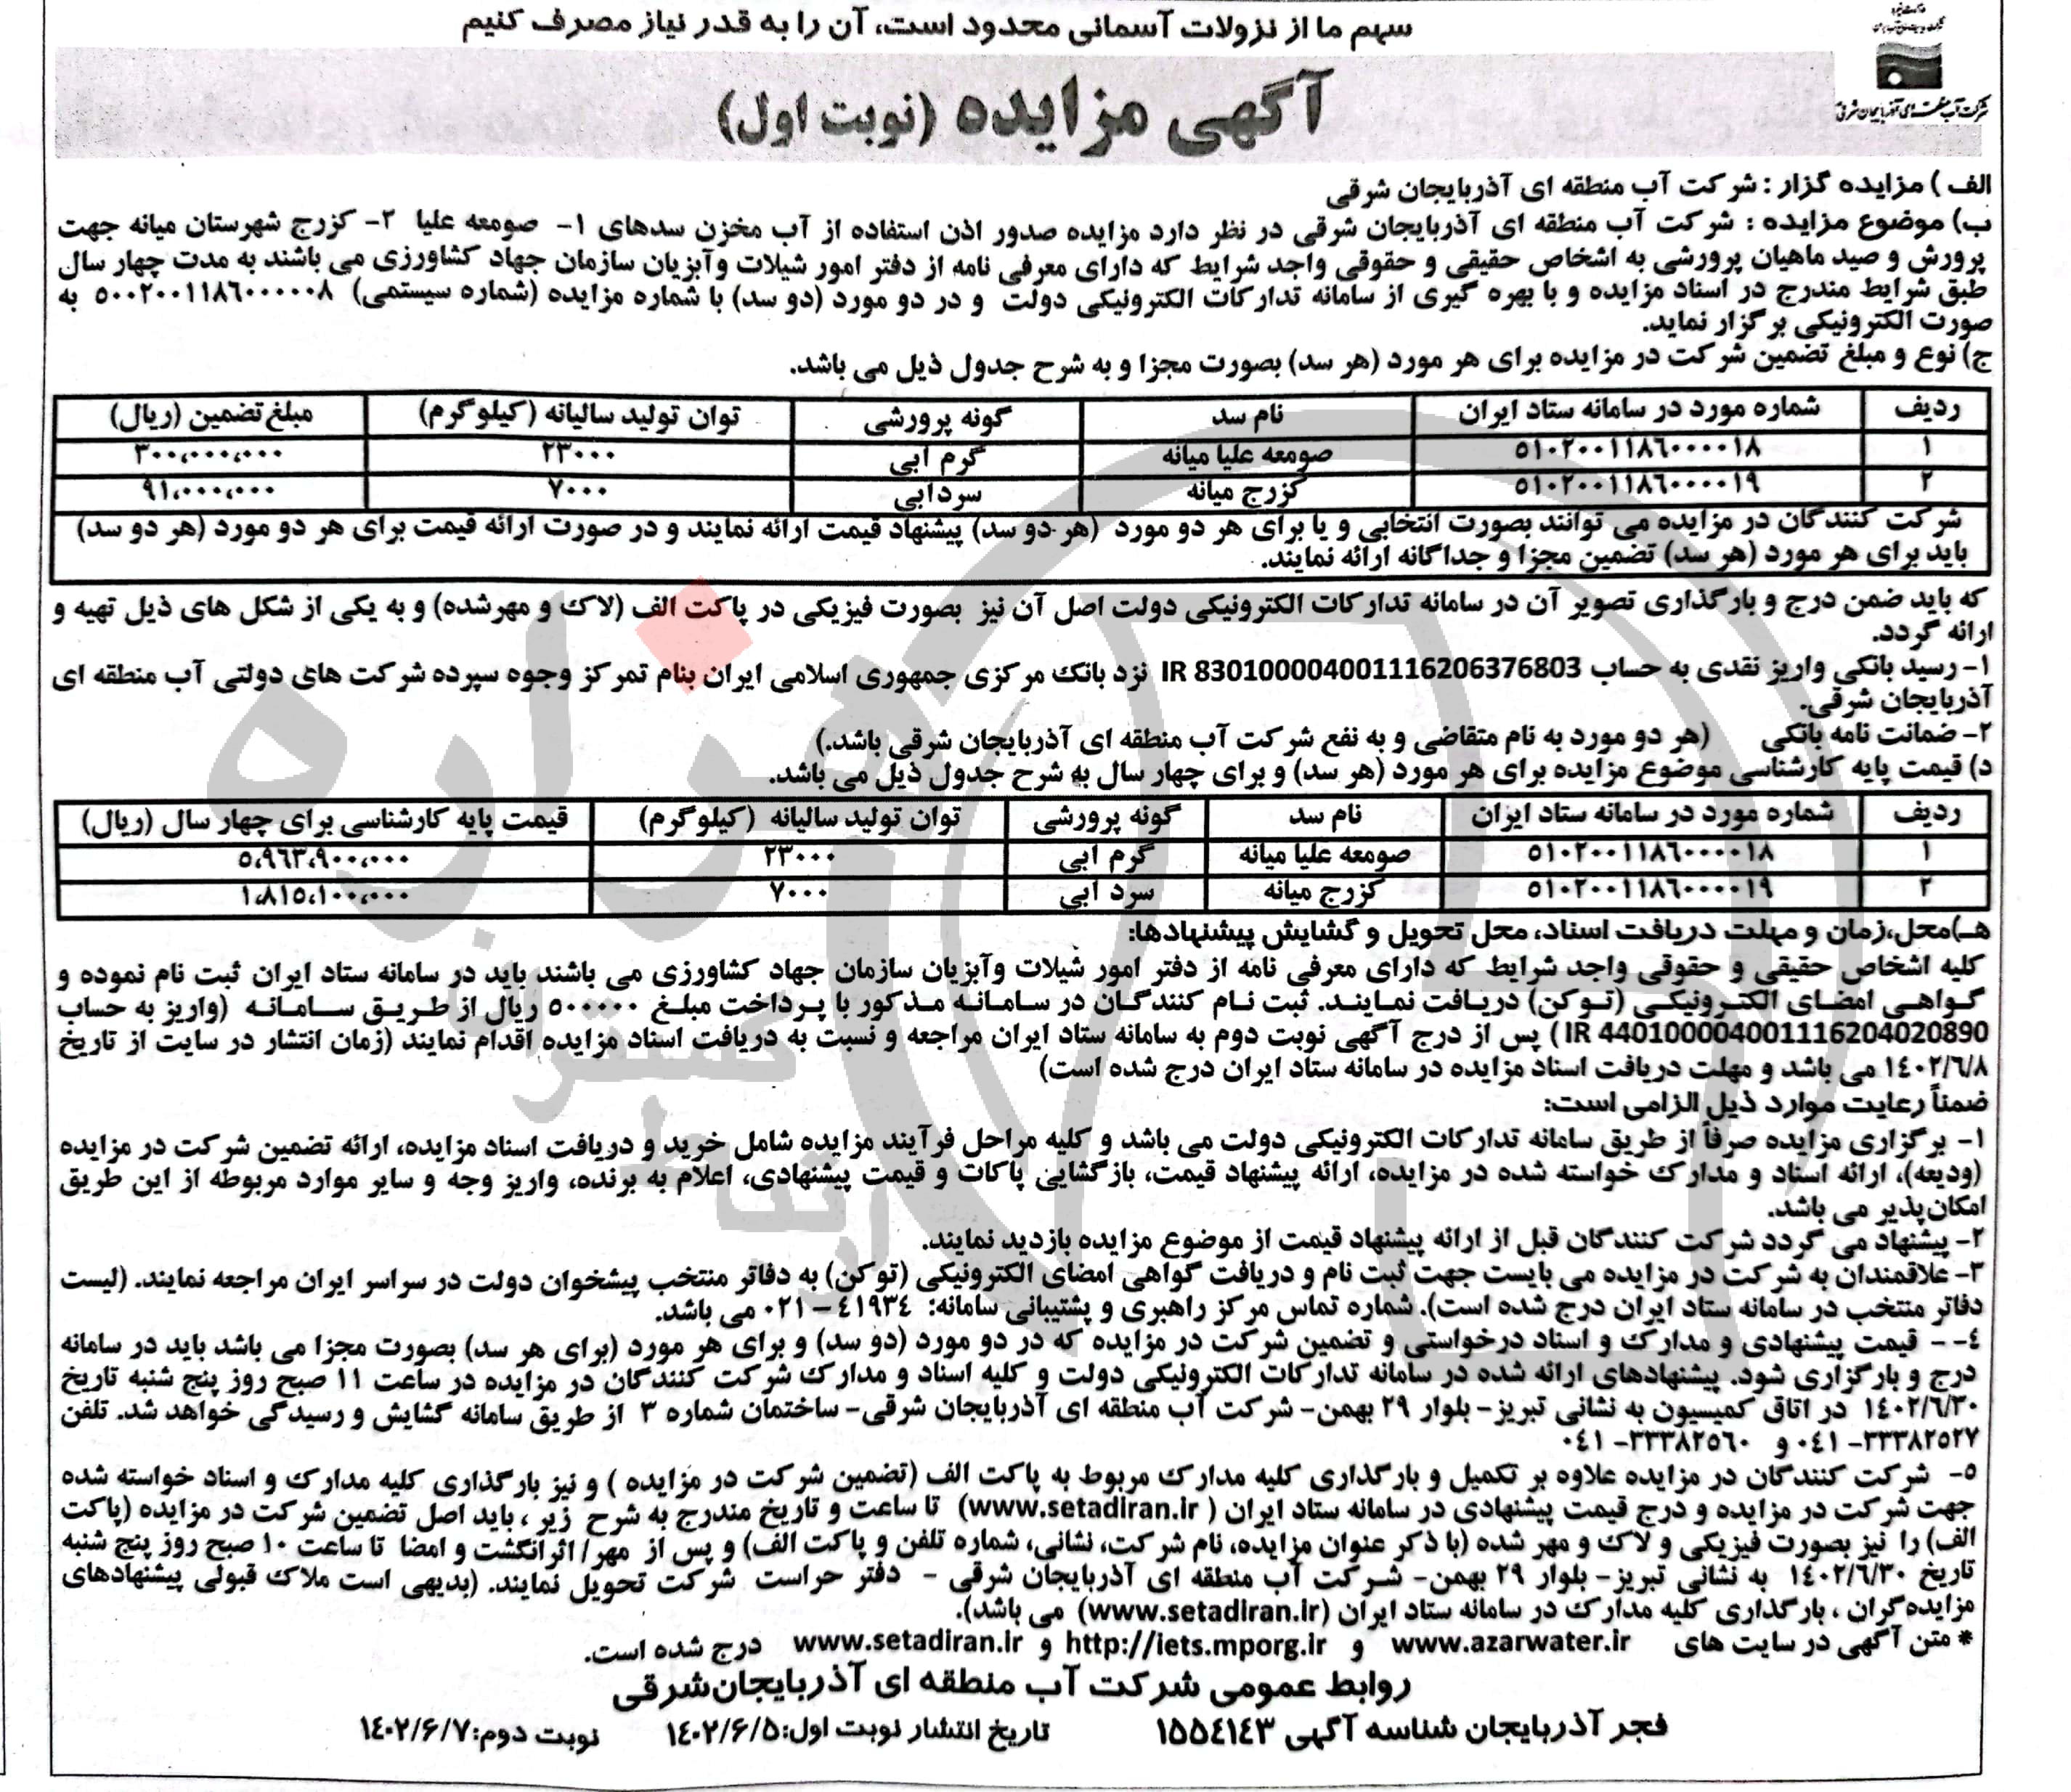 سهم ما از نزولات آسمانی محدود است، آن را به قدر نیاز مصرف کنیم
شرکت آب منطقه‌ای آذربایجان شرقی
آگهی مزایده (نوبت اول)
الف) مزایده گزار: شرکت آب منطقه ای آذربایجان شرقی
ب) موضوع مزایده: شرکت آب منطقه ای آذربایجان شرقی در نظر دارد مزایده صدور اذن استفاده از آب مخزن سدهای ۱- صومعه علیا ۲- کزرج شهرستان میانه جهت
پرورش و صید ماهیان پرورشی به اشخاص حقیقی و حقوقی واجد شرایط که دارای معرفی نامه از دفتر امور شیلات وآبزیان سازمان جهاد کشاورزی می باشند به مدت چهار سال
طبق شرایط مندرج در اسناد مزایده و با بهره گیری از سامانه تدارکات الکترونیکی دولت و در دو مورد (دو سد) با شماره مزایده (شماره سیستمی) ۵۰۰۲۰۰۱۱۸٦۰۰۰۰۰۸ به
صورت الکترونیکی برگزار نماید.
ج) نوع و مبلغ تضمین شرکت در مزایده برای هر مورد (هر سد) بصورت مجزا و به شرح جدول ذیل می باشد.
ردیف شماره مورد در سامانه ستاد ایران نام سد گونه پرورشی توان تولید سالیانه (کیلوگرم) مبلغ تضمین (ریال)
۱ ۵۱۰۲۰۰۱۱۸٦۰۰۰۰۱۸ صومعه علیا میانه گرم ابی ۲۳۰۰۰ ۳۰۰،۰۰۰،۰۰۰
۲ ۵۱۰۲۰۰۱۱۸٦۰۰۰۰۱۹ کزرج میانه سردابی ۷۰۰۰ ۹۱،۰۰۰،۰۰۰
شرکت کنندگان در مزایده می توانند بصورت انتخابی و یا برای هر دو مورد (هر دو سد) پیشنهاد قیمت ارائه نمایند و در صورت ارائه قیمت برای هر دو مورد (هر دو سد)
باید برای هر مورد (هر سد) تضمین مجزا و جداگانه ارائه نمایند.
که باید ضمن درج و بارگذاری تصویر آن در سامانه تدارکات الکترونیکی دولت اصل آن نیز بصورت فیزیکی در پاکت الف (لاک و مهرشده) و به یکی از شکل های ذیل تهیه و
ارائه گردد.
۱- رسید بانکی واریز نقدی به حساب IR 830100004001116206376803 نزد بانک مرکزی جمهوری اسلامی ایران بنام تمرکز وجوه سپرده شرکت های دولتی آب منطقه ای
آذربایجان شرقی.
۲- ضمانت نامه بانکی (هر دو مورد به نام متقاضی و به نفع شرکت آب منطقه ای آذربایجان شرقی باشد.)
د) قیمت پایه کارشناسی موضوع مزایده برای هر مورد (هر سد) و برای چهار سال به شرح جدول ذیل می باشد.
ردیف شماره مورد در سامانه ستاد ایران نام سد گونه پرورشی توان تولید سالیانه (کیلوگرم) قیمت پایه کارشناسی برای چهار سال (ریال)
۱ ۵۱۰۲۰۰۱۱۸٦۰۰۰۰۱۸ صومعه علیا میانه گرم ابی ۲۳۰۰۰ ۵،۹٦۳،۹۰۰،۰۰۰
۲ ۵۱۰۲۰۰۱۱۸٦۰۰۰۰۱۹ کزرج میانه سرد ابی ۷۰۰۰ ۱،۸۱۵،۱۰۰،۰۰۰
هـ)محل،زمان و مهلت دریافت اسناد، محل تحویل و گشایش پیشنهادها:
کلیه اشخاص حقیقی و حقوقی واجد شرایط که دارای معرفی نامه از دفتر امور شیلات وآبزیان سازمان جهاد کشاورزی می باشند باید در سامانه ستاد ایران ثبت نام نموده و
گواهی امضای الکترونیکی (توکن) دریافت نمایند. ثبت نام کنندگان در سامانه مذکور با پرداخت مبلغ ۵۰۰۰۰۰ ریال از طریق سامانه (واریز به حساب
IR 440100004001116204020890) پس از درج آگهی نوبت دوم به سامانه ستاد ایران مراجعه و نسبت به دریافت اسناد مزایده اقدام نمایند (زمان انتشار در سایت از تاریخ
۱٤۰۲/٦/۸ می باشد و مهلت دریافت اسناد مزایده در سامانه ستاد ایران درج شده است)
ضمناً رعایت موارد ذیل الزامی است:
۱- برگزاری مزایده صرفاً از طریق سامانه تدارکات الکترونیکی دولت می باشد و کلیه مراحل فرآیند مزایده شامل خرید و دریافت اسناد مزایده، ارائه تضمین شرکت در مزایده
(ودیعه)، ارائه اسناد و مدارک خواسته شده در مزایده، ارائه پیشنهاد قیمت، بازگشایی پاکات و قیمت پیشنهادی، اعلام به برنده، واریز وجه و سایر موارد مربوطه از این طریق
امکان‌پذیر می باشد.
۲- پیشنهاد می گردد شرکت کنندگان قبل از ارائه پیشنهاد قیمت از موضوع مزایده بازدید نمایند.
۳- علاقمندان به شرکت در مزایده می بایست جهت ثبت نام و دریافت گواهی امضای الکترونیکی (توکن) به دفاتر منتخب پیشخوان دولت در سراسر ایران مراجعه نمایند. (لیست
دفاتر منتخب در سامانه ستاد ایران درج شده است). شماره تماس مرکز راهبری و پشتیبانی سامانه: ٤۱۹۳٤ – ۰۲۱ می باشد.
٤-- قیمت پیشنهادی و مدارک و اسناد درخواستی و تضمین شرکت در مزایده که در دو مورد (دو سد) و برای هر مورد (برای هر سد) بصورت مجزا می باشد باید در سامانه
درج و بارگزاری شود. پیشنهادهای ارائه شده در سامانه تدارکات الکترونیکی دولت و کلیه اسناد و مدارک شرکت کنندگان در مزایده در ساعت ۱۱ صبح روز پنج شنبه تاریخ
۱٤۰۲/٦/۳۰ در اتاق کمیسیون به نشانی تبریز- بلوار ۲۹ بهمن- شرکت آب منطقه ای آذربایجان شرقی- ساختمان شماره ۳ از طریق سامانه گشایش و رسیدگی خواهد شد. تلفن
۳۳۳۸۲۵۲۷- ۰٤۱ و ۳۳۳۸۲۵٦۰- ۰٤۱
۵- شرکت کنندگان در مزایده علاوه بر تکمیل و بارگذاری کلیه مدارک مربوط به پاکت الف (تضمین شرکت در مزایده) و نیز بارگذاری کلیه مدارک و اسناد خواسته شده
جهت شرکت در مزایده و درج قیمت پیشنهادی در سامانه ستاد ایران (www.setadiran.ir) تا ساعت و تاریخ مندرج به شرح زیر، باید اصل تضمین شرکت در مزایده (پاکت
الف) را نیز بصورت فیزیکی و لاک و مهر شده (با ذکر عنوان مزایده، نام شرکت، نشانی، شماره تلفن و پاکت الف) و پس از مهر/ اثرانگشت و امضا تا ساعت ۱۰ صبح روز پنج شنبه
تاریخ ۱٤۰۲/٦/۳۰ به نشانی تبریز- بلوار ۲۹ بهمن- شرکت آب منطقه ای آذربایجان شرقی - دفتر حراست شرکت تحویل نمایند. (بدیهی است ملاک قبولی پیشنهادهای
مزایده‌گران، بارگذاری کلیه مدارک در سامانه ستاد ایران (www.setadiran.ir) می باشد).
* متن آگهی در سایت های www.azarwater.ir و http://iets.mporg.ir و www.setadiran.ir درج شده است.
روابط عمومی شرکت آب منطقه ای آذربایجان‌شرقی
فجر آذربایجان شناسه آگهی ۱۵۵٤۱٤۳ تاریخ انتشار نوبت اول:۱٤۰۲/٦/۵ نوبت دوم:۱٤۰۲/٦/۷
هزاره